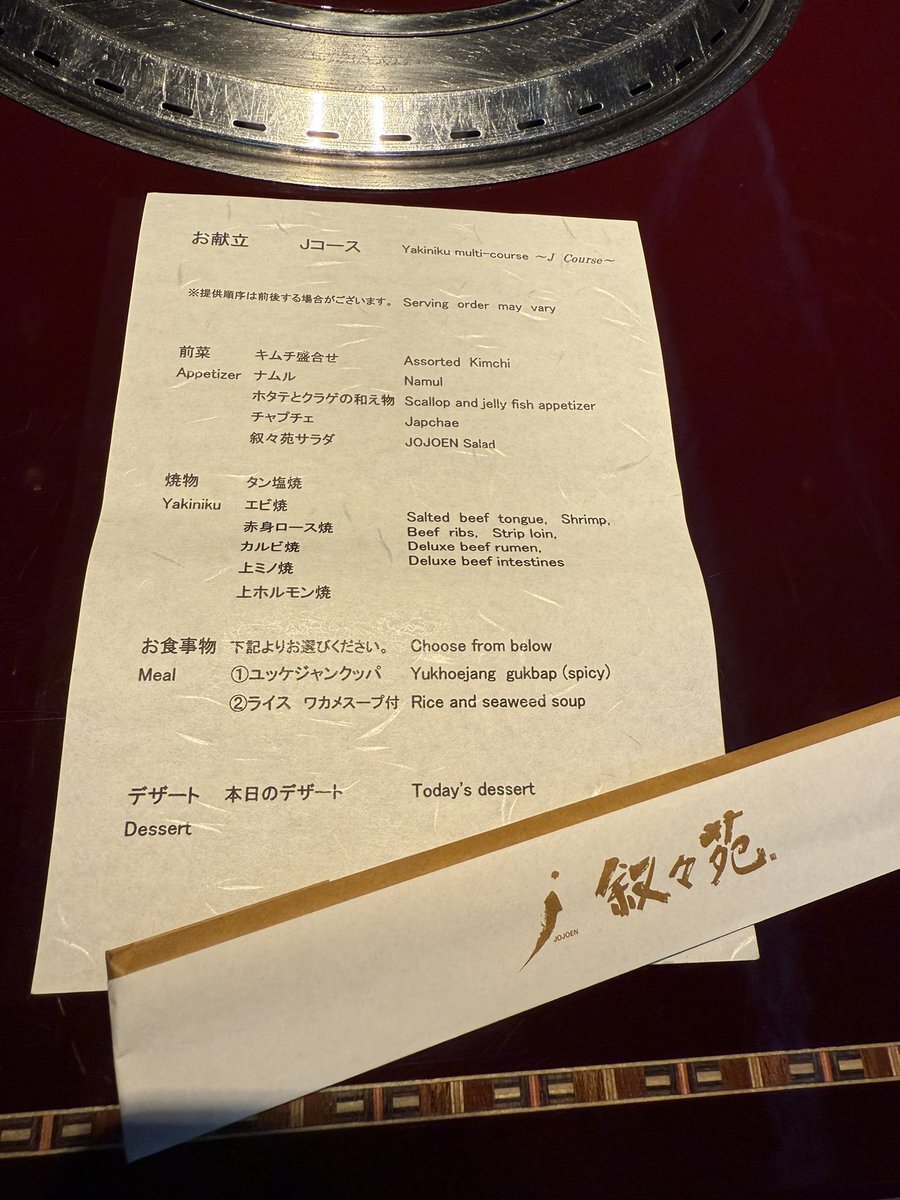 お献立 Jコース Yakiniku multi-course ～J Course～
※提供順序は前後する場合がございます。 Serving order may vary
前菜 キムチ盛合せ Assorted Kimchi
Appetizer ナムル Namul
ホタテとクラゲの和え物 Scallop and jelly fish appetizer
チャプチェ Japchae
叙々苑サラダ JOJOEN Salad
焼物 タン塩焼
Yakiniku エビ焼
赤身ロース焼
カルビ焼
上ミノ焼
上ホルモン焼
Salted beef tongue, Shrimp,
Beef ribs, Strip loin,
Deluxe beef rumen,
Deluxe beef intestines
お食事物 下記よりお選びください。 Choose from below
Meal ①ユッケジャンクッパ Yukhoejang gukbap (spicy)
②ライス ワカメスープ付 Rice and seaweed soup
デザート 本日のデザート Today's dessert
Dessert
j 叙々苑
JOJOEN